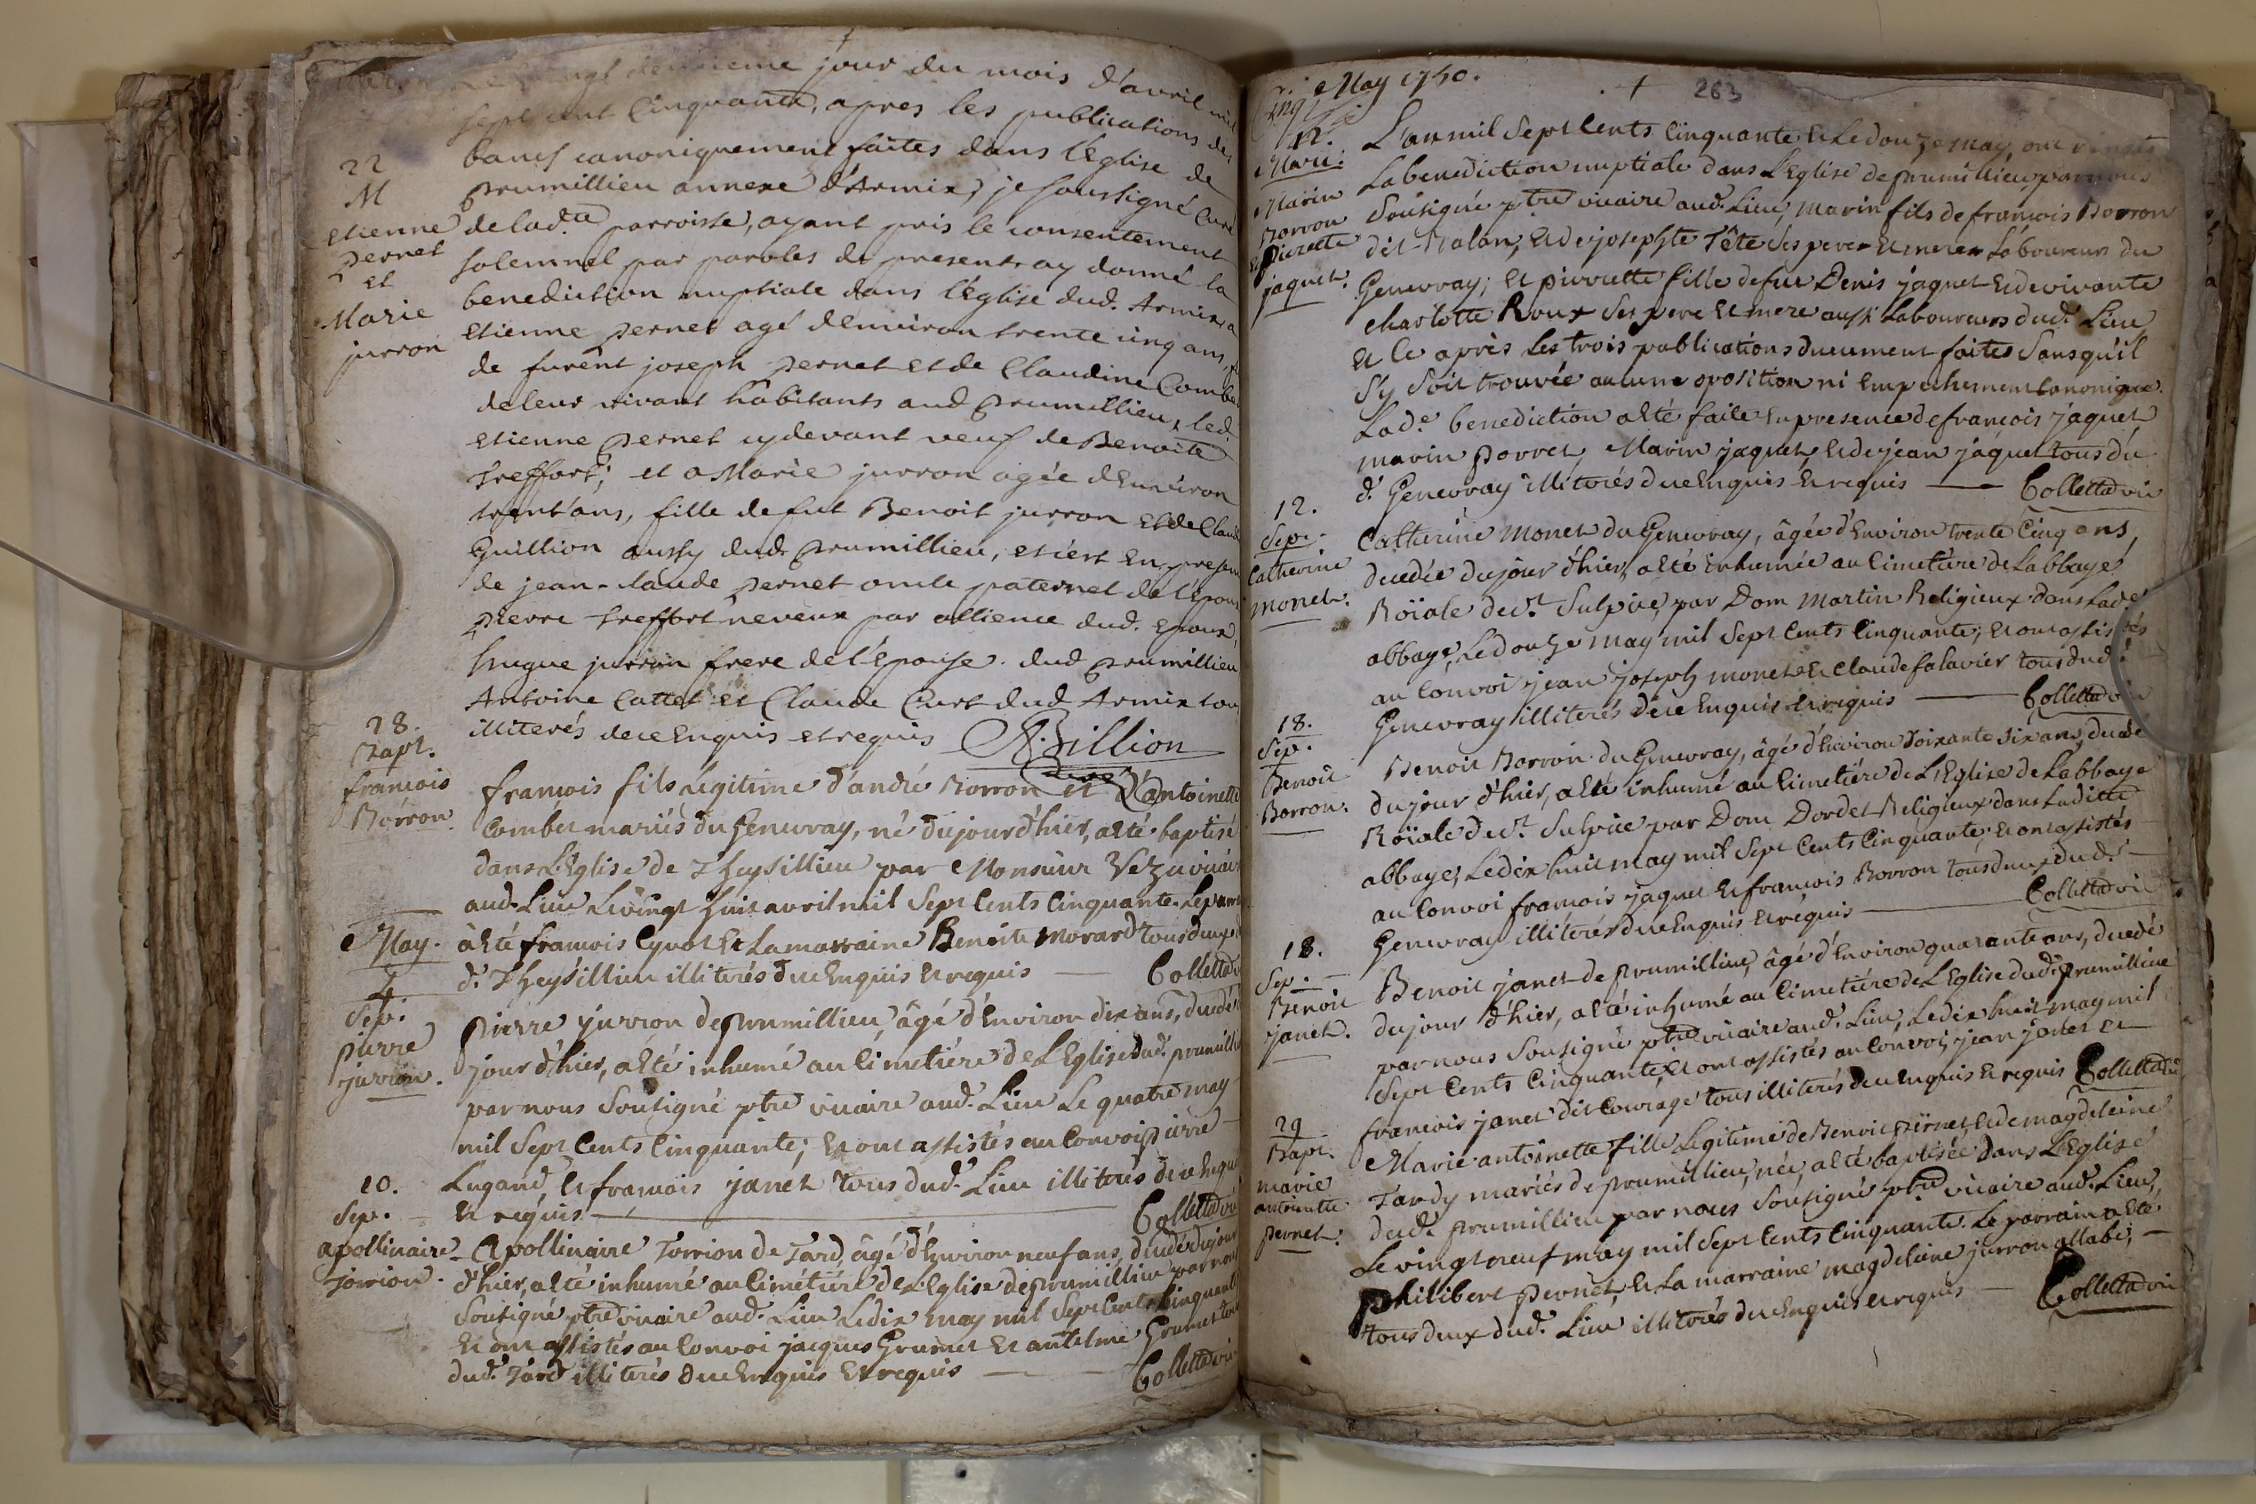 Le vingt deuxieme jour du mois d'avril mil
sept cent Cinquante, apres les publications des
bancs canoniquement faites dans l'Eglise de
prumillieu annexe d'Armix, je soussigné Curé
de lad.tte parroisse, ayant pris le consentement
solemnel par paroles de present ay donné la
benediction nuptiale dans l'Eglise dud. Armix, a
etienne pernet agé d'environ trente cinq ans,
de furent joseph pernet et de Claudine Combe
de leur vivant habitants aud prumillieu, led.
etienne pernet cydevant veuf de Benoite
treffort; et a Marie jurron agée d'Environ
trent'ans, fille de fut Benoit jurron et de Claud
Guillion aussy dud. prumillieu, et c'est En presen
de jean-claude pernet oncle paternel de l'Epoux
pierre treffort neveux par allience dud. Epoux,
hugue jurron frere de l'Epouse dud prumillieu
Antoine Cattet et Claude Curt dud Armix tou
illiterés de ce Enquis et requis A. Billion
Curé
22
M
etienne
pernet
et
Marie
jurron
28.
Bapt.
francois
Borron.
francois fils legitime d'andré Borron et d'antoinette
Combet mariés du Genevray, né du jour d'hier, a Eté baptisé
dans L'Eglise de Theysillieu par Monsieur Vezu vicaire
aud. Lieu Le vingt huit avril mil Sept Cents Cinquante. Le parr
a Eté francois Cynot Et La marraine Benoite Morard tous deux
d. Theysillieu illiterés de ce Enquis Et requis Colletta vi
May.
4
Sep.
pierre
jurron.
pierre jurron de prumillieu, âgé d'Environ dix ans, decedé
jour d'hier, a Eté inhumé au Cimetiére de L'Eglise dud. prumilli
par nous Soussigné ptre vicaire aud. Lieu Le quatre may
mil Sept Cents Cinquante; Et ont assistés au Convoi pierre
Lugand, Et francois janet tous dud. Lieu illiterés de ce Enqu
Et requis Colletta vi
10.
Sep.
apollinaire
Torrion.
Apollinaire Torrion de Tard, âgé d'Environ neuf ans, decedé du jour
d'hier, a Eté inhumé au Cimétiére de L'Eglise de prumillieu par nous
Soutigné ptre vicaire aud. Lieu Le dix may mil Sept Cents Cinquant
Et ont assistés au Convoi jacques Grumet Et antelme Grumet tous
dud. Tard illiterés de ce Enquis Et requis Colletta vi
May 1750.
263
12.
Marié.
Marin
Borron
Et
pierrette
jaquet.
L'an mil Sept Cents Cinquante Et Le douze May, ont
La benediction nuptiale dans L'Eglise de prumillieu, par nous
Soutigné ptre vicaire aud. Lieu, Marin fils de francois Borron
dit Balan, Et de josephte Tête Ses pere Et mere Laboureurs du
Genevray; Et pierrette fille de feu Denis jaquet Et de vivante
Charlotte Roux Ses pere Et mere aussi Laboureurs dud. Lieu
Et Ce après Les trois publications ducument faites Sans qu'il
S'y Soit trouvée aucune oposition ni Empechement Canonique.
Lad.e benediction a Eté faite En presence de francois jaquet
marin porret, Marin jaquet, Et de jean jaquet tous du
d. Genevray illiterés de ce Enquis Et requis Colletta vic
12.
Sep.
Catherine
monet.
Catherine Monet du Genevray, âgée d'Environ trente Cinq ans,
decedée du jour d'hier, a Eté inhumée au Cimetiére de L'abbaye
Roïale de St Sulpice, par Dom Martin Religieux dans Lad.e
abbaye, Le douze may mil Sept Cents Cinquante; Et ont assistés
au Convoi jean joseph monet Et Claude falavier tous dud.
Genevray illiterés de ce Enquis Et requis Colletta vic
18.
Sep.
Benoit
Borron.
Benoit Borron du Genevray, âgé d'Environ Soixante Six ans, decedé
du jour d'hier, a Eté inhumé au Cimetiére de L'Eglise de L'abbaye
Roïale de St Sulpice par Dom Dordet Religieux dans Laditte
abbaye, Le dix huit may mil Sept Cents Cinquante; Et ont assistés
au Convoi francois jaquet Et francois Borron tous deux dud.
Genevray illiterés de ce Enquis Et requis Colletta vi
18.
Sep.
Benoit
janet.
Benoit janet de prumillieu, âgé d'Environ quarante ans, decedé
du jour d'hier, a Eté inhumé au Cimetiére de L'Eglise dud. prumillieu
par nous Soutigné ptre vicaire aud. Lieu, Le dix huit may mil
Sept Cents Cinquante, Et ont assistés au Convoi jean janet Et
francois janet dit Courage tous illiterés de ce Enquis Et requis Colletta vic
29
Bapt.
marie
antoinette
pernet.
Marie antoinette fille Legitime de Benoit pernet, Et de magdeleine
Tardy mariés de prumillieu, née, a Eté baptisée dans L'Eglise
dud. prumillieu par nous Soutigné ptre vicaire aud. Lieu,
Le vingt neuf may mil Sept Cents Cinquante. Le parrain a Eté
philibert pernet, Et La marraine magdelaine jurron
tous deux dud. Lieu illiterés de ce Enquis Et requis Colletta vic